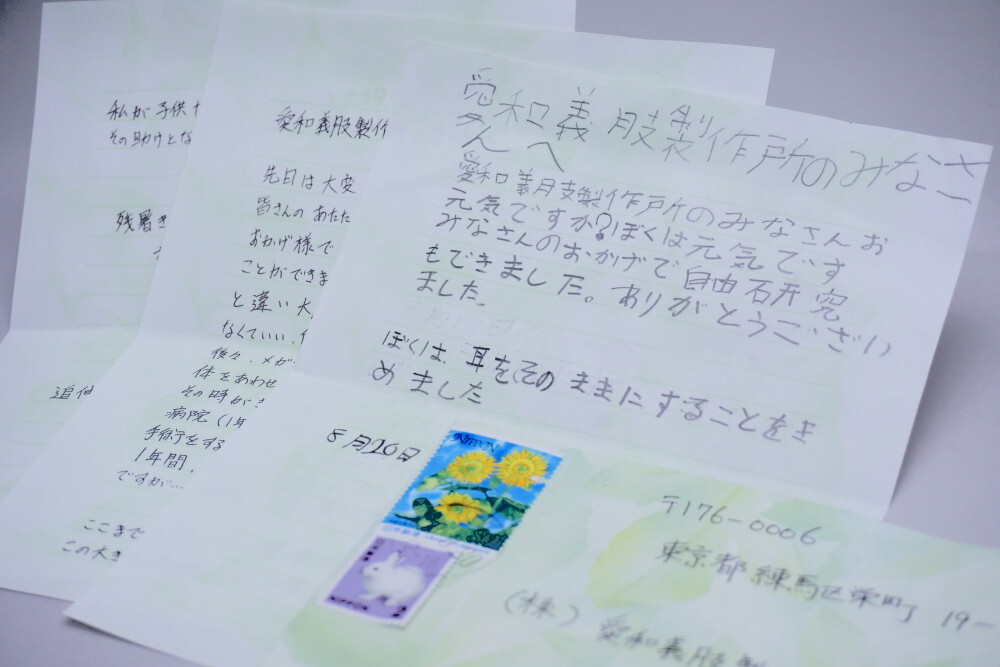 私が子供
その助けとな
残暑
追伸
愛和義肢製作
先日は大変
皆さんのあたた
おかげ様で
ことができま
と違い大
なくていい、
後々、メガ
体をあわせ
その時が
病院（1年
手術をする
1年間、
ですが…
ここまで
この大き
愛和義肢製作所のみなさ
んへ
愛和義肢製作所のみなさんお
元気ですか？ぼくは元気です
みなさんのおかげで自由研究
もできました。ありがとうござい
ました。
ぼくは、耳をそのままにすることをき
めました
8月20日
NIPPON
80
〒176-0006
東京都練馬区栄町 19-
（株）愛和義肢製